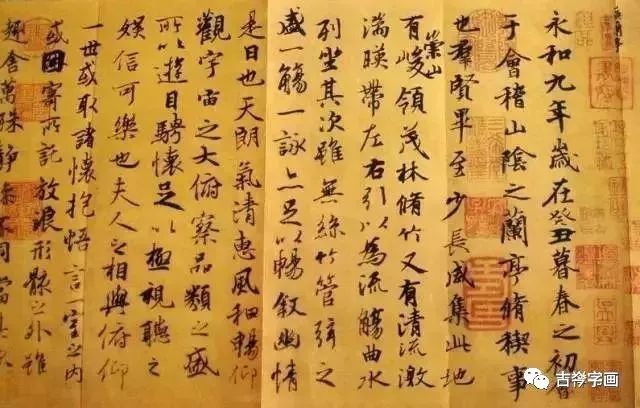 永和九年歲在癸丑暮春之初會
于會稽山陰之蘭亭脩稧事
也羣賢畢至少長咸集此地
有崇山峻領茂林脩竹又有清流激
湍暎帶左右引以為流觴曲水
列坐其次雖無絲竹管弦之
盛一觴一詠亦足以暢敘幽情
是日也天朗氣清惠風和暢仰
觀宇宙之大俯察品類之盛
所以遊目騁懷足以極視聽之
娛信可樂也夫人之相與俯仰
一世或取諸懷抱悟言一室之內
或因寄所託放浪形骸之外雖
趣舍萬殊靜躁不同當其
字画